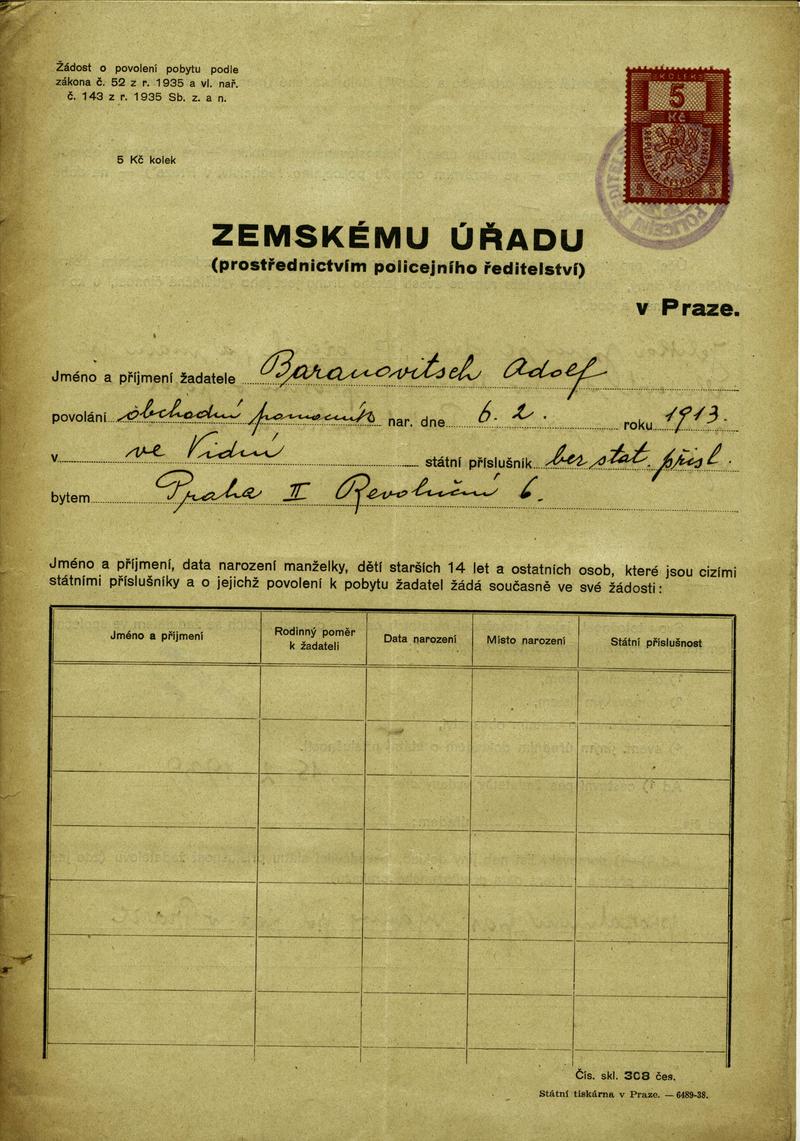 Žádost o povolení pobytu podle
zákona č. 52 z r. 1935 a vl. nař.
č. 143 z r. 1935 Sb. z. a n.
5 Kč kolek
KOLEK
5
Kč
REPUBLIKA ČESKOSLOVENSKÁ
5 5
POLICEJNÍ
ZEMSKÉMU ÚŘADU
(prostřednictvím policejního ředitelství)
v Praze.
Jméno a příjmení žadatele Baranovitsch Adolf
povolání obchodní pomocník nar. dne 6. 2. roku 1913.
v ve Vídni státní příslušník bez stat. přísl.
bytem Praha II Revoluční 6.
Jméno a příjmení, data narození manželky, dětí starších 14 let a ostatních osob, které jsou cizími
státními příslušníky a o jejichž povolení k pobytu žadatel žádá současně ve své žádosti:
Jméno a příjmení Rodinný poměr k žadateli Data narození Místo narození Státní příslušnost
Čís. skl. 308 čes.
Státní tiskárna v Praze. — 6489-38.